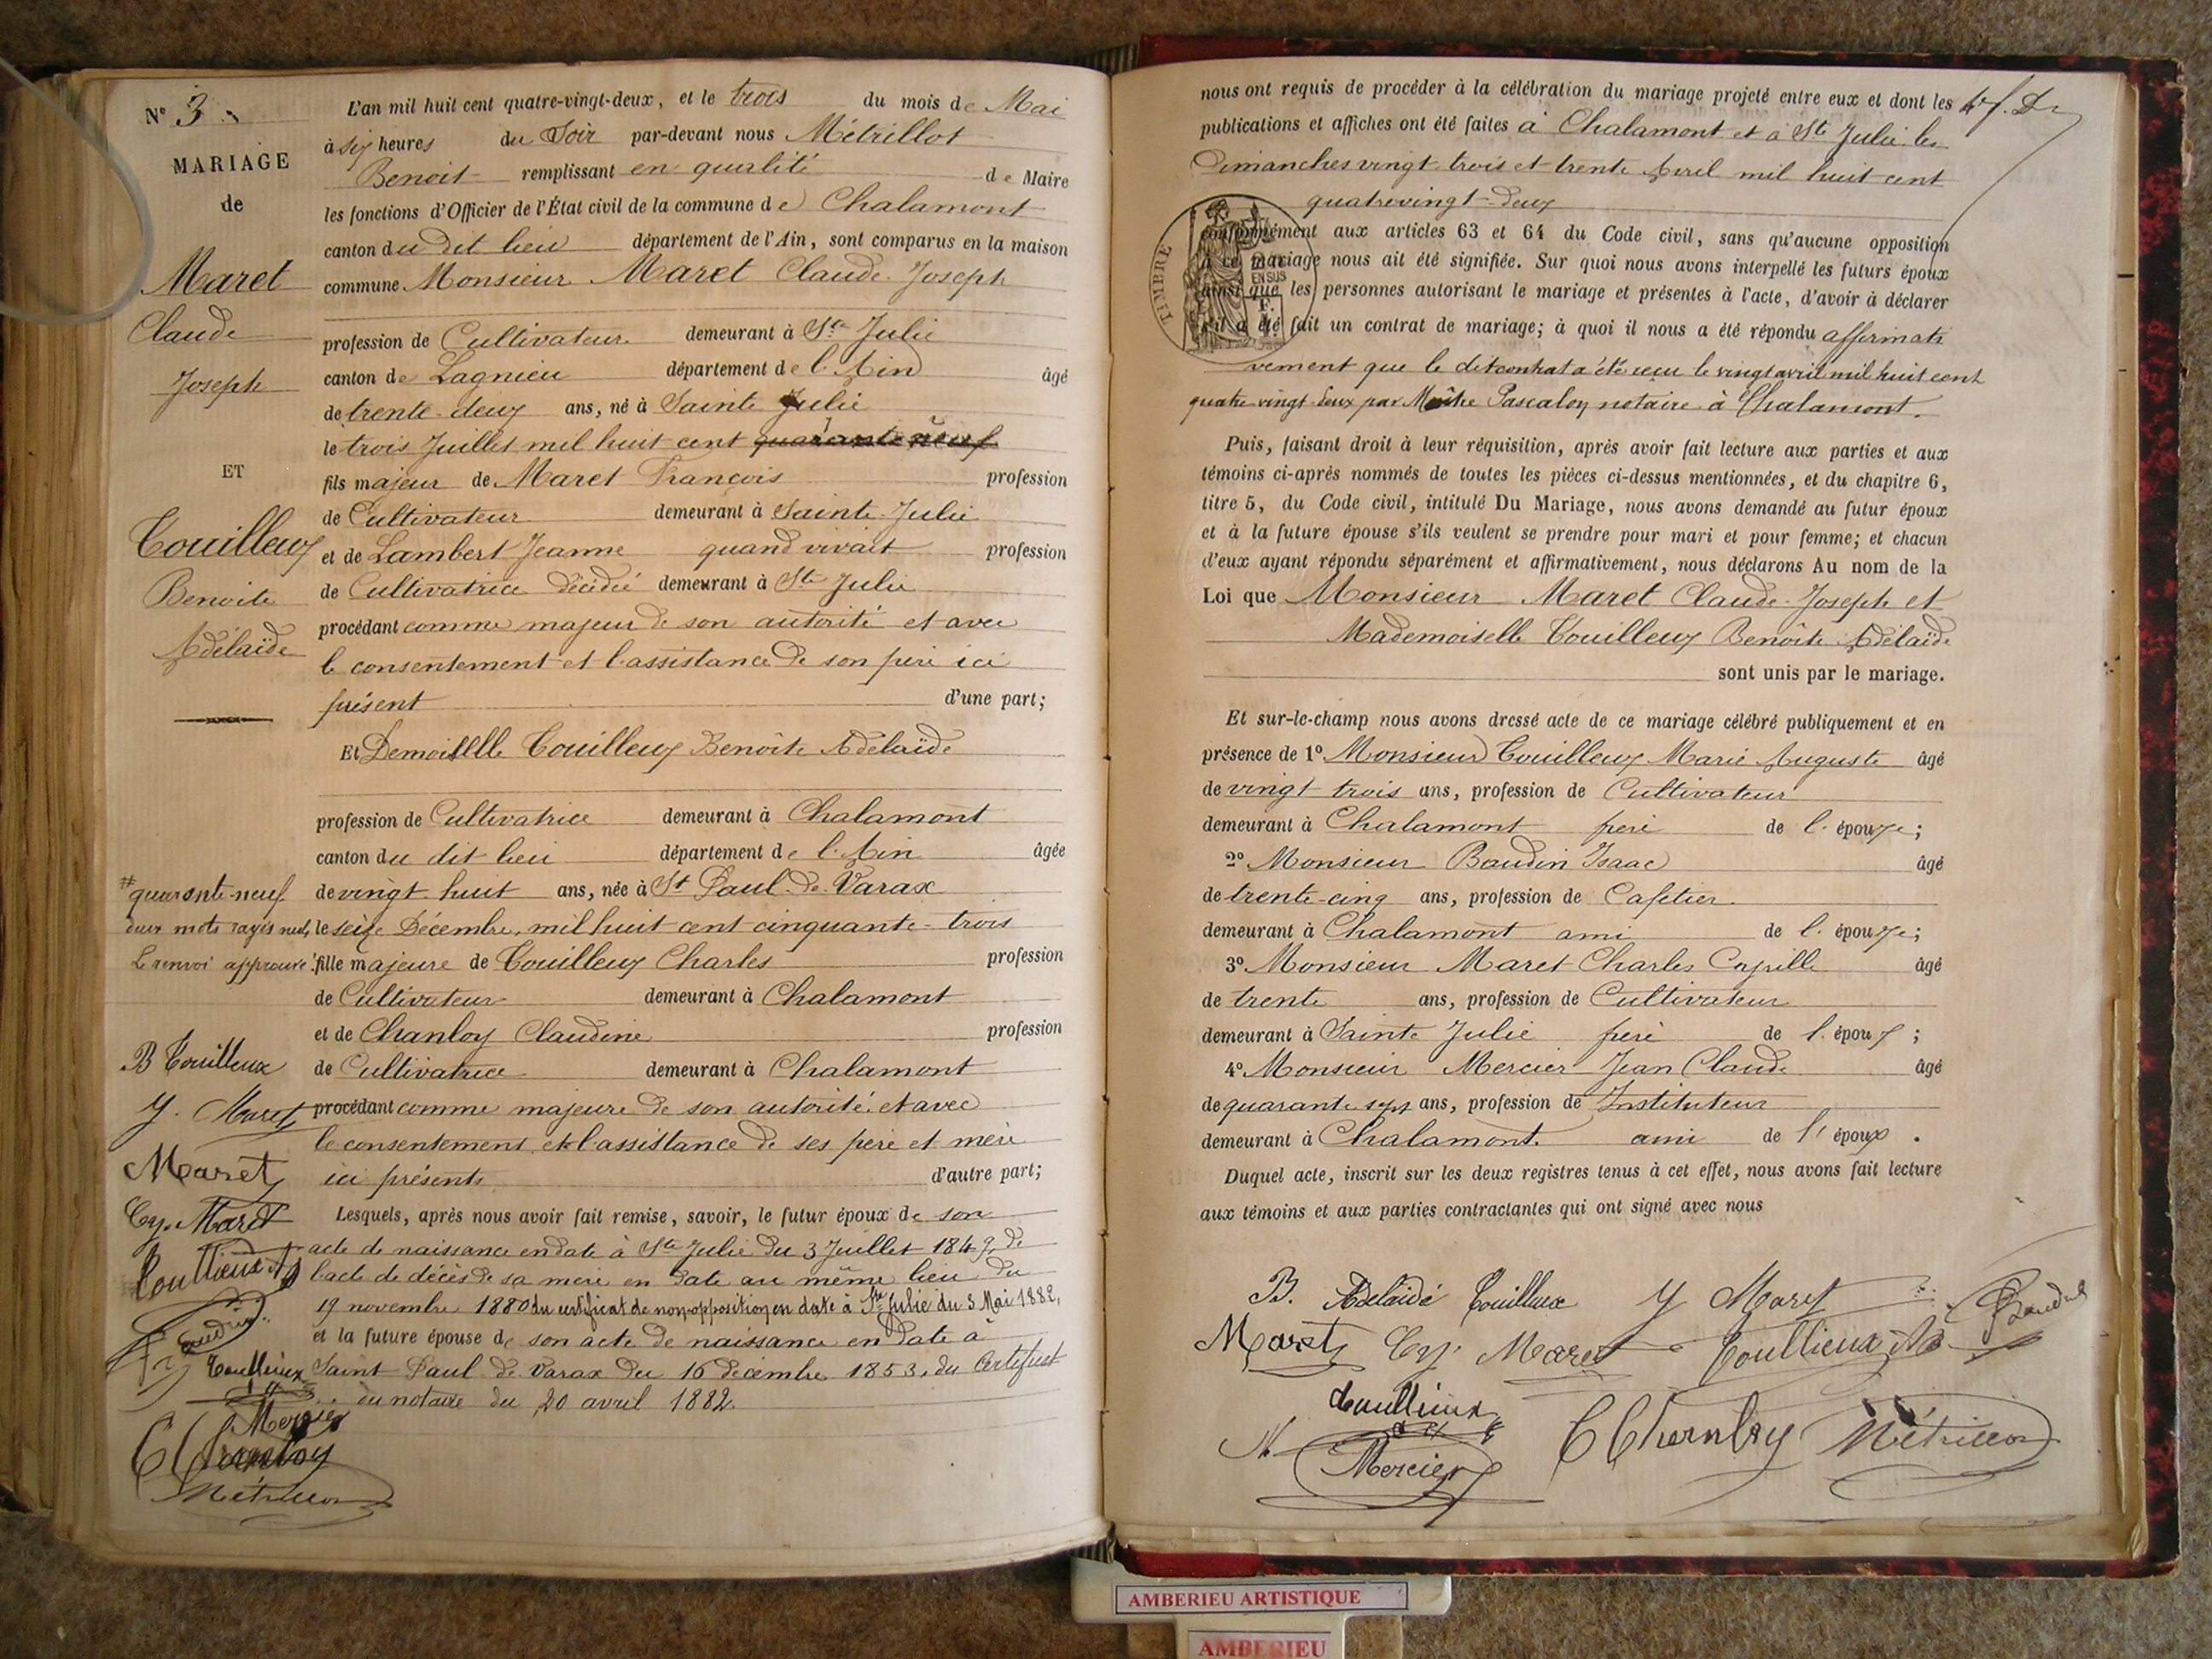 N° 3
MARIAGE
de
Maret
Claude
Joseph
ET
Touilleux
Benoite
Adélaïde
# quarante-neuf
deux mots rayés nuls,
Le renvoi approuvé.
B Touilleux
Y. Maret
Maret
Cy. Maret
Toullieux
Baudin
Toullieux
Mercier
C Chanloy
Métrillot
L'an mil huit cent quatre-vingt-deux, et le trois du mois de Mai
à six heures du Soir par-devant nous Métrillot
Benoit remplissant en qualité de Maire
les fonctions d'Officier de l'État civil de la commune de Chalamont
canton du dit lieu département de l'Ain, sont comparus en la maison
commune Monsieur Maret Claude Joseph
profession de Cultivateur demeurant à Ste Julie
canton de Lagnieu département de l'Ain âgé
de trente-deux ans, né à Sainte Julie
le trois Juillet mil huit cent quarante neuf
fils majeur de Maret François profession
de Cultivateur demeurant à Sainte Julie
et de Lambert Jeanne quand vivait profession
de Cultivatrice décédée demeurant à Ste Julie
procédant comme majeur de son autorité et avec
le consentement et l'assistance de son père ici
présent d'une part;
Et Demoiselle Touilleux Benoîte Adélaïde
profession de Cultivatrice demeurant à Chalamont
canton du dit lieu département de l'Ain âgée
de vingt huit ans, née à St Paul de Varax
le seize Décembre, mil huit cent cinquante-trois
fille majeure de Touilleux Charles profession
de Cultivateur demeurant à Chalamont
et de Chanloy Claudine profession
de Cultivatrice demeurant à Chalamont
procédant comme majeure de son autorité et avec
le consentement et l'assistance de ses père et mère
ici présents d'autre part;
Lesquels, après nous avoir fait remise, savoir, le futur époux de son
acte de naissance en date à Ste Julie du 3 Juillet 1849, de
l'acte de décès de sa mère en date au même lieu du
19 novembre 1880 du certificat de non-opposition en date à Ste Julie du 3 Mai 1882,
et la future épouse de son acte de naissance en date à
Saint Paul de Varax du 16 décembre 1853, du Certificat
du notaire du 20 avril 1882.
nous ont requis de procéder à la célébration du mariage projeté entre eux et dont les
publications et affiches ont été faites à Chalamont et à Ste Julie les
Dimanches vingt-trois et trente Avril mil huit cent
quatrevingt-deux
conformément aux articles 63 et 64 du Code civil, sans qu'aucune opposition
à ce mariage nous ait été signifiée. Sur quoi nous avons interpellé les futurs époux
ainsi que les personnes autorisant le mariage et présentes à l'acte, d'avoir à déclarer
s'il a été fait un contrat de mariage; à quoi il nous a été répondu affirmati
vement que le dit contrat a été reçu le vingt avril mil huit cent
quatre vingt deux par Maître Pascalon notaire à Chalamont.
TIMBRE
EN SUS
Puis, faisant droit à leur réquisition, après avoir fait lecture aux parties et aux
témoins ci-après nommés de toutes les pièces ci-dessus mentionnées, et du chapitre 6,
titre 5, du Code civil, intitulé Du Mariage, nous avons demandé au futur époux
et à la future épouse s'ils veulent se prendre pour mari et pour femme; et chacun
d'eux ayant répondu séparément et affirmativement, nous déclarons Au nom de la
Loi que Monsieur Maret Claude Joseph et
Mademoiselle Touilleux Benoîte Adélaïde
sont unis par le mariage.
Et sur-le-champ nous avons dressé acte de ce mariage célébré publiquement et en
présence de 1° Monsieur Touilleux Marie Auguste âgé
de vingt trois ans, profession de Cultivateur
demeurant à Chalamont frère de l'épouse;
2° Monsieur Baudin Isaac âgé
de trente-cinq ans, profession de Cafetier
demeurant à Chalamont ami de l'épouse;
3° Monsieur Maret Charles âgé
de trente ans, profession de Cultivateur
demeurant à Sainte Julie frère de l'époux;
4° Monsieur Mercier Jean Claude âgé
de quarante sept ans, profession de Instituteur
demeurant à Chalamont. ami de l'époux.
Duquel acte, inscrit sur les deux registres tenus à cet effet, nous avons fait lecture
aux témoins et aux parties contractantes qui ont signé avec nous
B. Adelaïde Touilleux Y Maret Baudin
Maret Cy. Maret Toullieux
Toullieux
Mercier C Chanloy Métrillot
AMBERIEU ARTISTIQUE
AMBERIEU